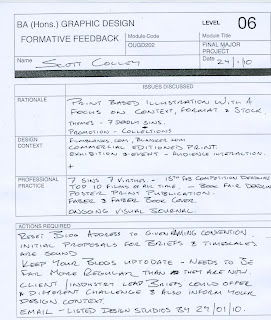 BA (Hons.) GRAPHIC DESIGN
FORMATIVE FEEDBACK
LEVEL 06
Module Code
OUGD202
Module Title
FINAL MAJOR PROJECT
Name SCOTT COLLEY
Date 29/1/10
ISSUES DISCUSSED
RATIONALE
PRINT BASED ILLUSTRATION WITH A
FOCUS ON CONTEXT, FORMAT & STOCK,
THEMES - 7 DEADLY SINS.
PROMOTION - COLLECTIONS
DESIGN CONTEXT
COMMERCIAL EDITIONED PRINT.
EXHIBITION & EVENT - AUDIENCE INTERACTION.
PROFESSIONAL PRACTICE
7 SINS 7 VIRTUES. - 15TH FEB COMPETITION DEADLINE
TOP 10 FILMS OF ALL TIME. - BOOK FAIR DEADLINE
POSTER PRINT PUBLICATION.
FABER & FABER BOOK COVER
ONGOING VISUAL JOURNAL
ACTIONS REQUIRED
RESET BLOG ADDRESS TO GIVEN NAMING CONVENTION
INITIAL PROPOSALS FOR BRIEFS & TIMESCALES
ARE SOUND
KEEP YOUR BLOGS UP TO DATE - NEEDS TO BE
FAR MORE REGULAR THAN THEY ARE NOW.
CLIENT/INDUSTRY LEAD BRIEFS COULD OFFER
A DIFFERENT CHALLENGE & ALSO INFORM YOUR
DESIGN CONTEXT.
EMAIL - LISTED DESIGN STUDIOS BY 29/01/10.